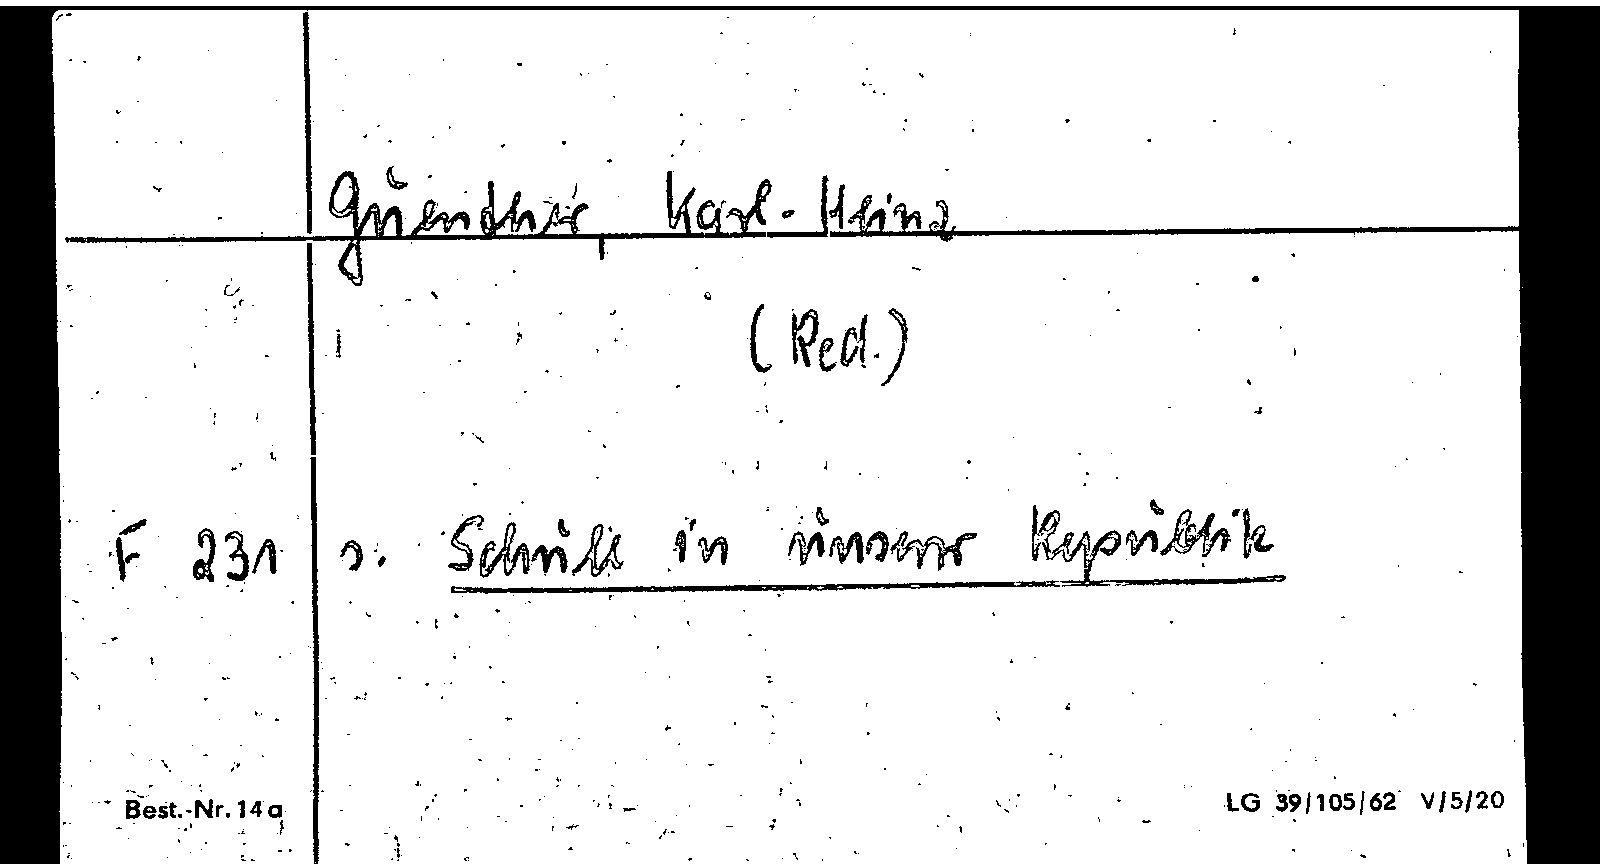 Guenther, Karl-Heinz
(Red.)
F 231 s. Schule in unserer Republik
Best.-Nr. 14a LG 39/105/62 V/5/20